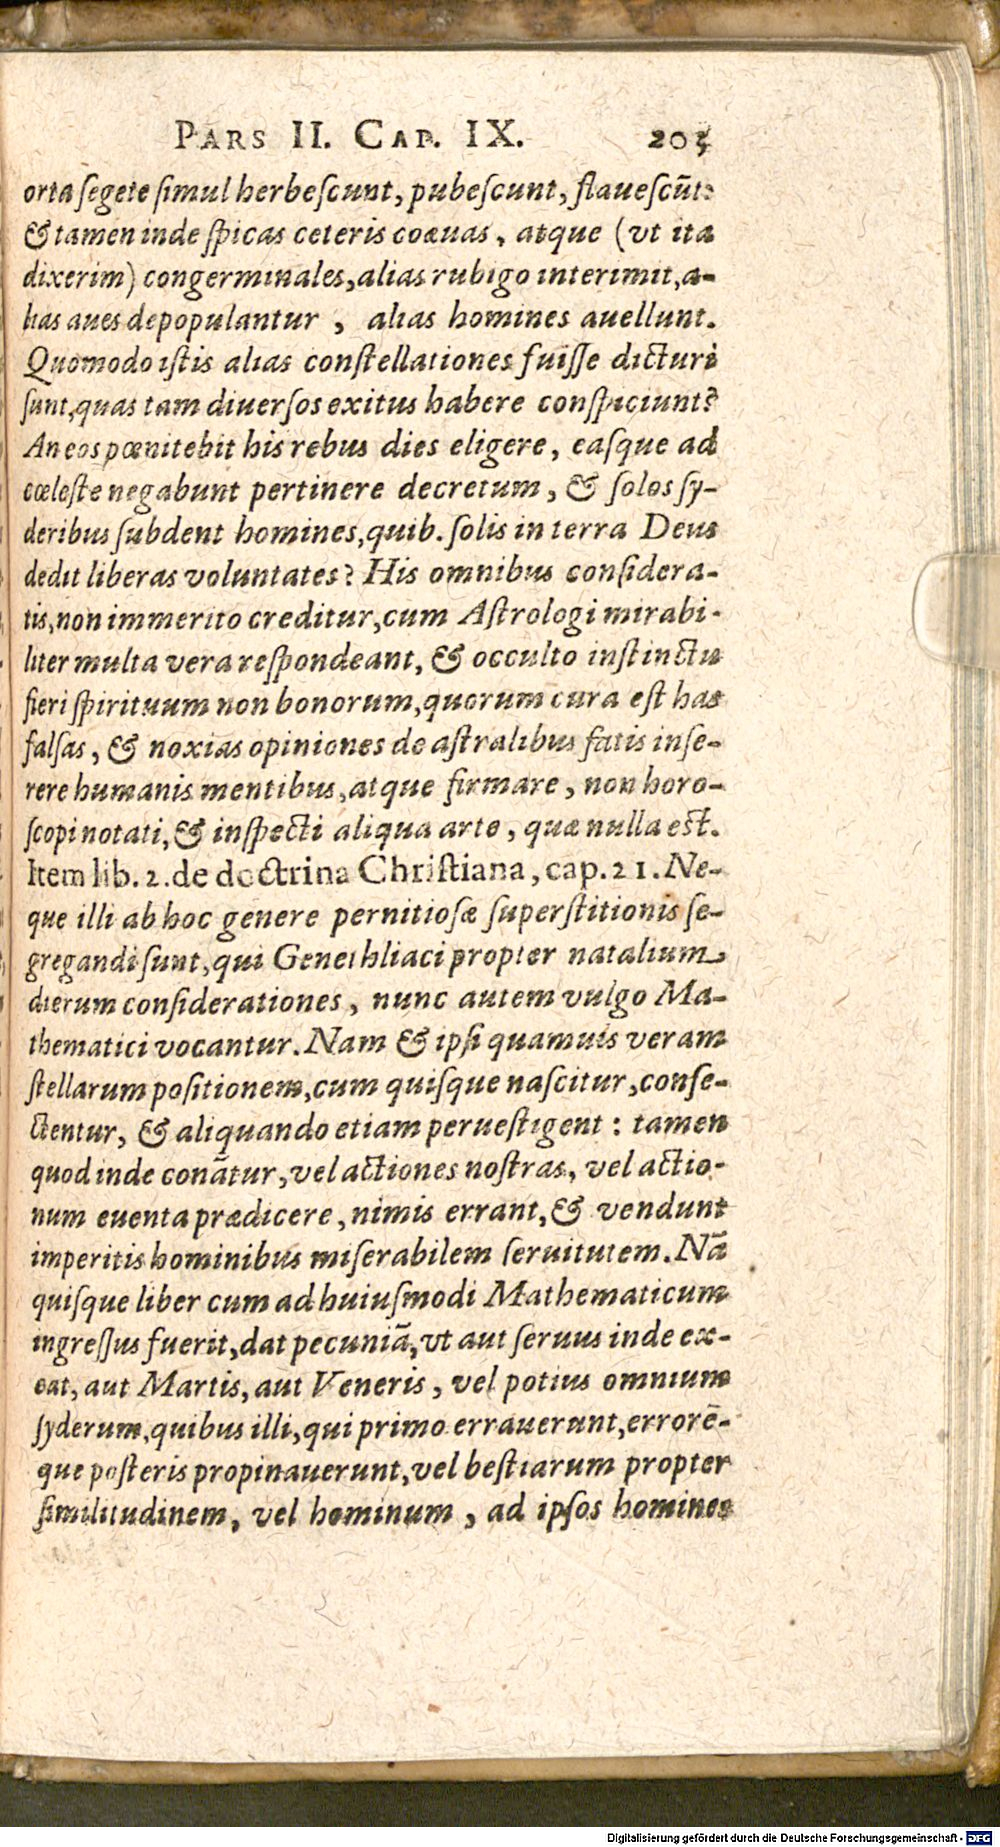 PARS II. CAP. IX. 205
orta ſegete ſimul herbeſcunt, pubeſcunt, flaueſcūt:
& tamen inde ſpicas ceteris coæuas, atque (vt ita
dixerim) congerminales, alias rubigo interimit, a-
lias aues depopulantur, alias homines auellunt.
Quomodo iſtis alias conſtellationes fuiſſe dicturi
ſunt, quas tam diuerſos exitus habere conſpiciunt?
An eos pœnitebit his rebus dies eligere, eaſque ad
cœleſte negabunt pertinere decretum, & ſolos ſy-
deribus ſubdent homines, quib. ſolis in terra Deus
dedit liberas voluntates? His omnibus conſidera-
tis, non immerito creditur, cum Aſtrologi mirabi-
liter multa vera reſpondeant, & occulto inſtinctu
fieri ſpirituum non bonorum, quorum cura eſt has
falſas, & noxias opiniones de aſtralibus fatis inſe-
rere humanis mentibus, atque firmare, non horo-
ſcopi notati, & inſpecti aliqua arte, quæ nulla eſt.
Item lib. 2. de doctrina Chriſtiana, cap. 21. Ne-
que illi ab hoc genere pernitioſæ ſuperſtitionis ſe-
gregandi ſunt, qui Genethliaci propter natalium
dierum conſiderationes, nunc autem vulgo Ma-
thematici vocantur. Nam & ipſi quamuis veram
ſtellarum poſitionem, cum quiſque naſcitur, conſe-
ctentur, & aliquando etiam perueſtigent: tamen
quod inde conātur, vel actiones noſtras, vel actio-
num euenta prædicere, nimis errant, & vendunt
imperitis hominibus miſerabilem ſeruitutem. Nā
quiſque liber cum ad huiuſmodi Mathematicum
ingreſſus fuerit, dat pecuniā, vt aut ſeruus inde ex-
eat, aut Martis, aut Veneris, vel potius omnium
ſyderum, quibus illi, qui primo errauerunt, errorē-
que poſteris propinauerunt, vel beſtiarum propter
ſimilitudinem, vel hominum, ad ipſos homines
Digitalisierung gefördert durch die Deutsche Forschungsgemeinschaft - DFG